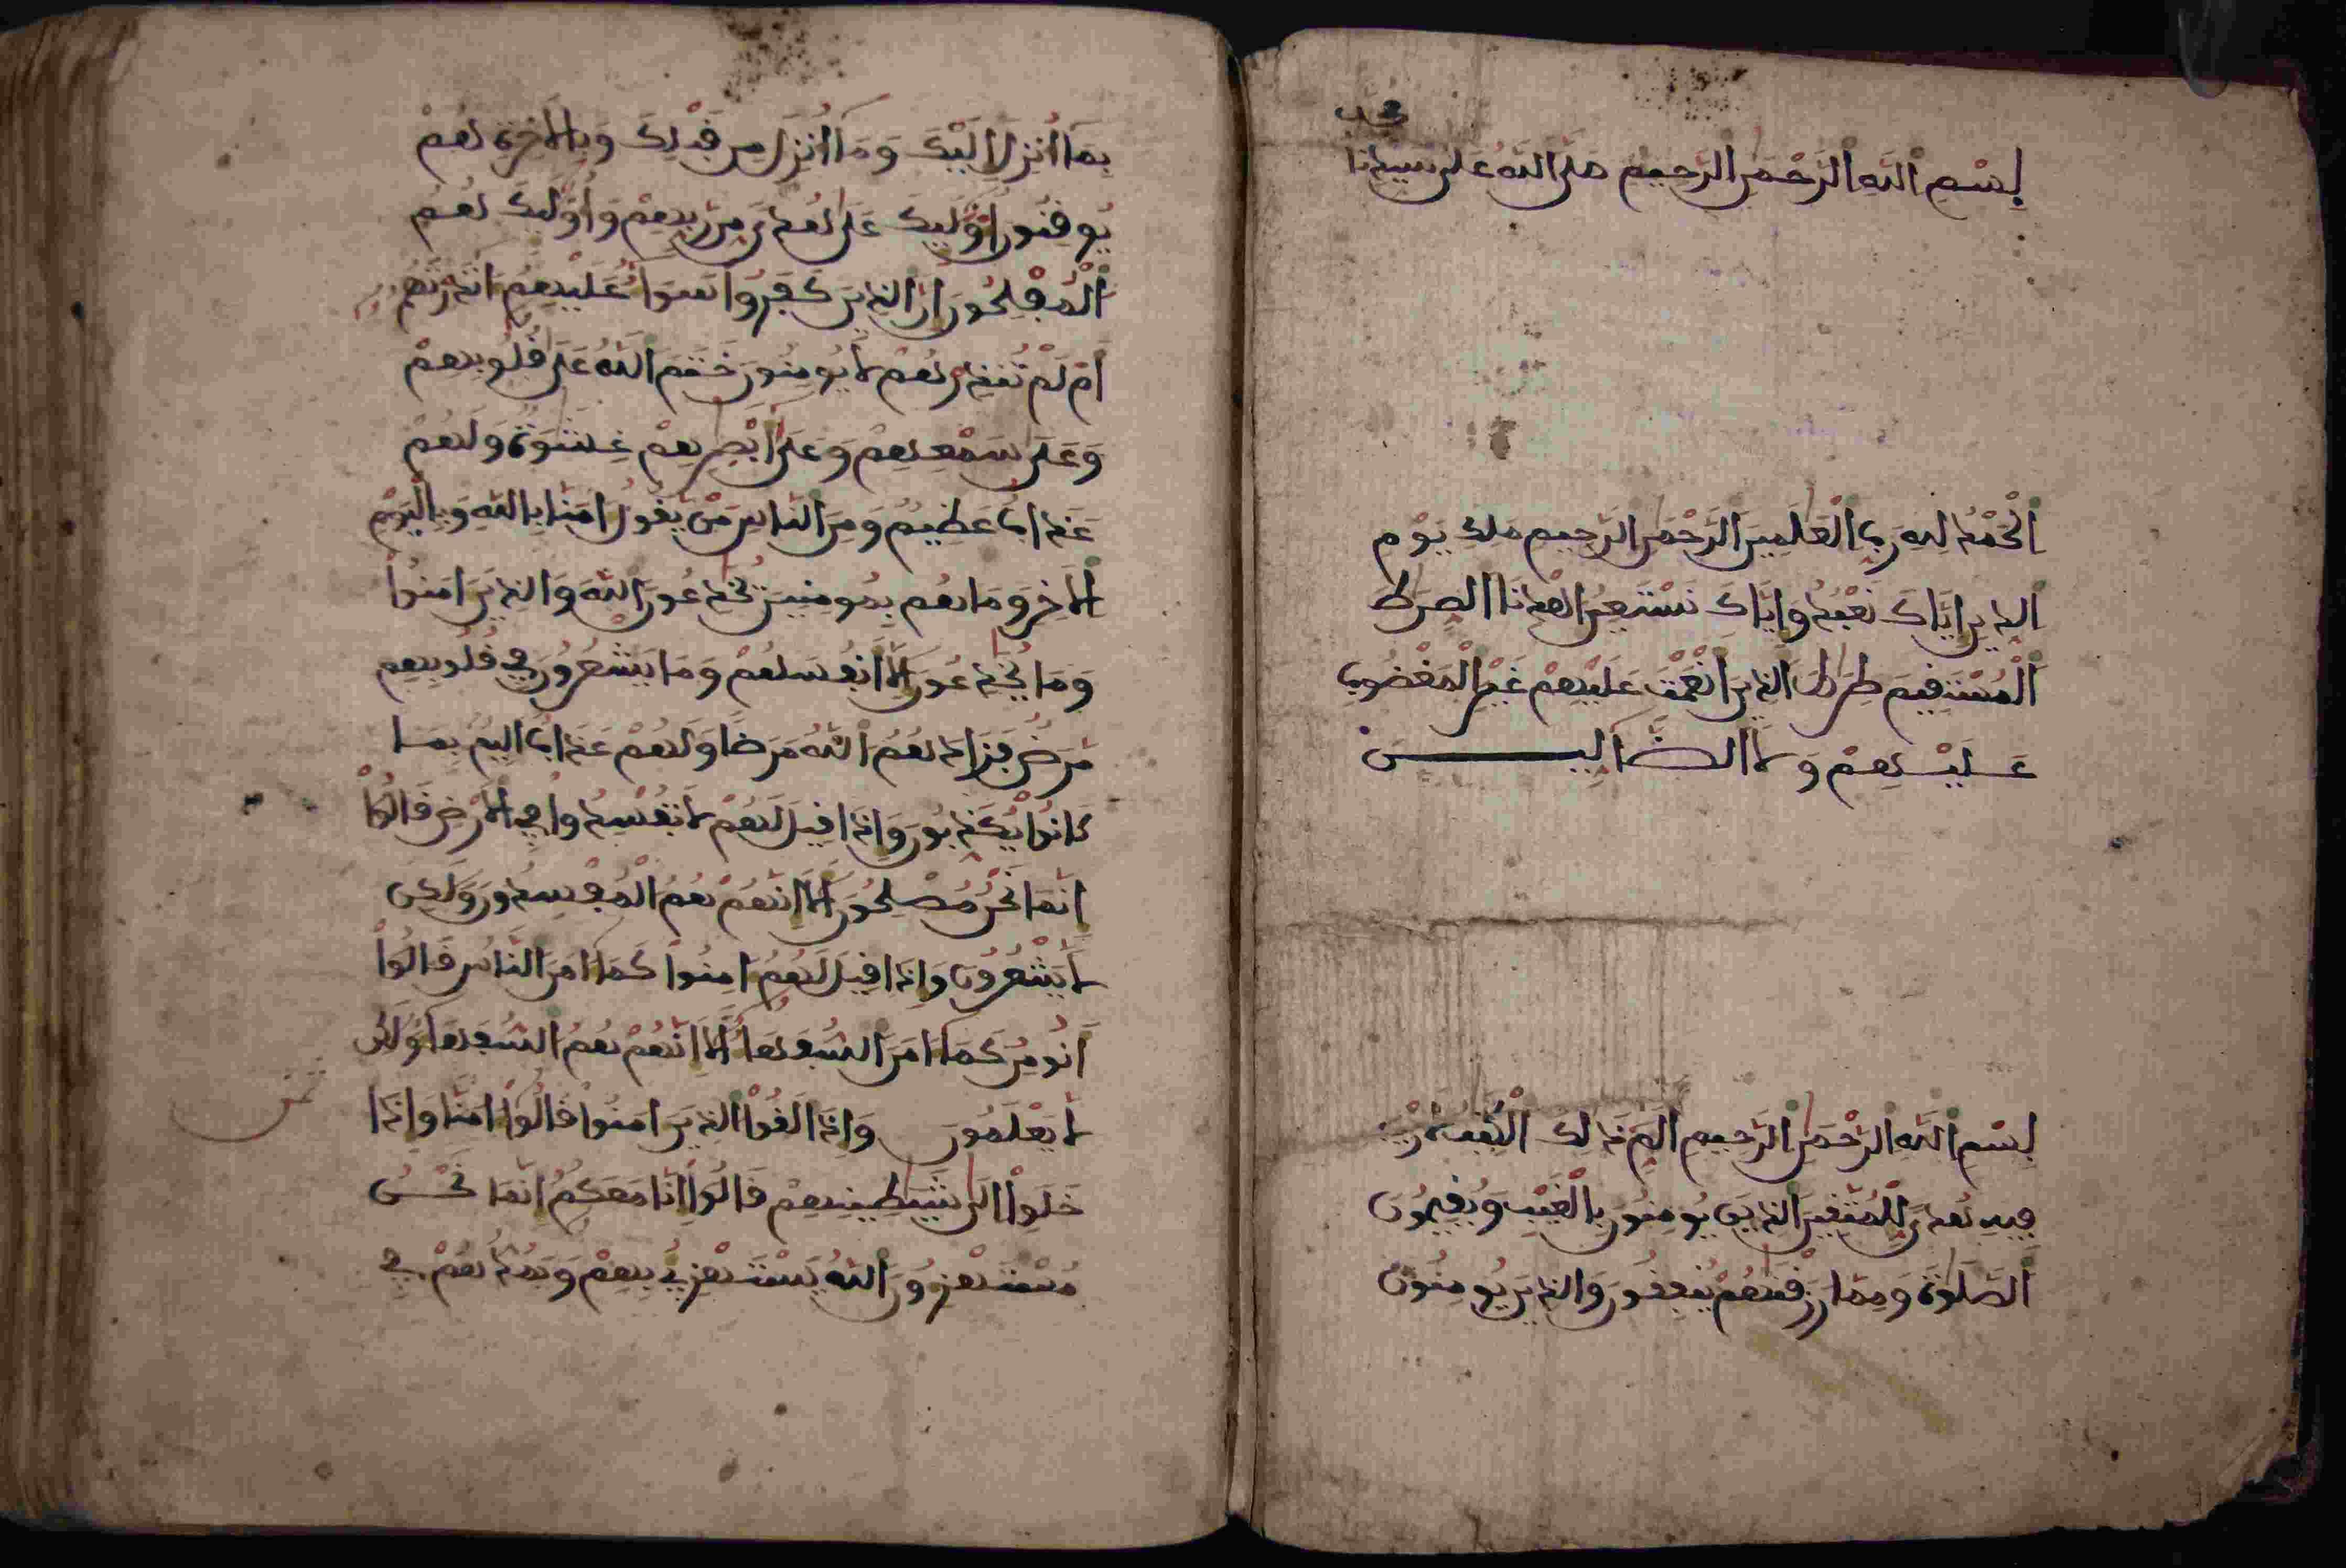 محمد
بِسْمِ اللَّهِ الرَّحْمَٰنِ الرَّحِيمِ صَلَّى اللَّهُ عَلَى سَيِّدِنَا
الْحَمْدُ لِلَّهِ رَبِّ الْعَٰلَمِينَ الرَّحْمَٰنِ الرَّحِيمِ مَلِكِ يَوْمِ
الدِّينِ إِيَّاكَ نَعْبُدُ وَإِيَّاكَ نَسْتَعِينُ اهْدِنَا الصِّرَٰطَ
الْمُسْتَقِيمَ صِرَٰطَ الَّذِينَ أَنْعَمْتَ عَلَيْهِمْ غَيْرِ الْمَغْضُوبِ
عَلَيْهِمْ وَلَا الضَّآلِّينَ
بِسْمِ اللَّهِ الرَّحْمَٰنِ الرَّحِيمِ الٓمٓ ذَٰلِكَ الْكِتَٰبُ لَا رَيْبَ
فِيهِ هُدًى لِّلْمُتَّقِينَ الَّذِينَ يُومِنُونَ بِالْغَيْبِ وَيُقِيمُونَ
الصَّلَوٰةَ وَمِمَّا رَزَقْنَٰهُمْ يُنفِقُونَ وَالَّذِينَ يُومِنُونَ
بِمَا أُنزِلَ إِلَيْكَ وَمَا أُنزِلَ مِن قَبْلِكَ وَبِالْأَخِرَةِ هُمْ
يُوقِنُونَ أُوْلَٰئِكَ عَلَىٰ هُدًى مِّن رَّبِّهِمْ وَأُوْلَٰئِكَ هُمُ
الْمُفْلِحُونَ إِنَّ الَّذِينَ كَفَرُوا سَوَآءٌ عَلَيْهِمْ ءَأَنذَرْتَهُمْ
أَمْ لَمْ تُنذِرْهُمْ لَا يُومِنُونَ خَتَمَ اللَّهُ عَلَىٰ قُلُوبِهِمْ
وَعَلَىٰ سَمْعِهِمْ وَعَلَىٰ أَبْصَٰرِهِمْ غِشَٰوَةٌ وَلَهُمْ
عَذَابٌ عَظِيمٌ وَمِنَ النَّاسِ مَنْ يَقُولُ ءَامَنَّا بِاللَّهِ وَبِالْيَوْمِ
الْأَخِرِ وَمَا هُم بِمُومِنِينَ يُخَٰدِعُونَ اللَّهَ وَالَّذِينَ ءَامَنُوا
وَمَا يُخَٰدِعُونَ إِلَّا أَنفُسَهُمْ وَمَا يَشْعُرُونَ فِي قُلُوبِهِم
مَّرَضٌ فَزَادَهُمُ اللَّهُ مَرَضًا وَلَهُمْ عَذَابٌ أَلِيمٌ بِمَا
كَانُوا يُكَذِّبُونَ وَإِذَا قِيلَ لَهُمْ لَا تُفْسِدُوا فِي الْأَرْضِ قَالُوا
إِنَّمَا نَحْنُ مُصْلِحُونَ أَلَا إِنَّهُمْ هُمُ الْمُفْسِدُونَ وَلَٰكِن
لَّا يَشْعُرُونَ وَإِذَا قِيلَ لَهُمُ ءَامِنُوا كَمَا ءَامَنَ النَّاسُ قَالُوا
أَنُومِنُ كَمَا ءَامَنَ السُّفَهَاءُ أَلَا إِنَّهُمْ هُمُ السُّفَهَاءُ وَلَٰكِن
لَّا يَعْلَمُونَ وَإِذَا لَقُوا الَّذِينَ ءَامَنُوا قَالُوا ءَامَنَّا وَإِذَا
ثمن
خَلَوْا إِلَىٰ شَيَٰطِينِهِمْ قَالُوا إِنَّا مَعَكُمُ إِنَّمَا نَحْنُ
مُسْتَهْزِءُونَ اللَّهُ يَسْتَهْزِئُ بِهِمْ وَيَمُدُّهُمْ فِي